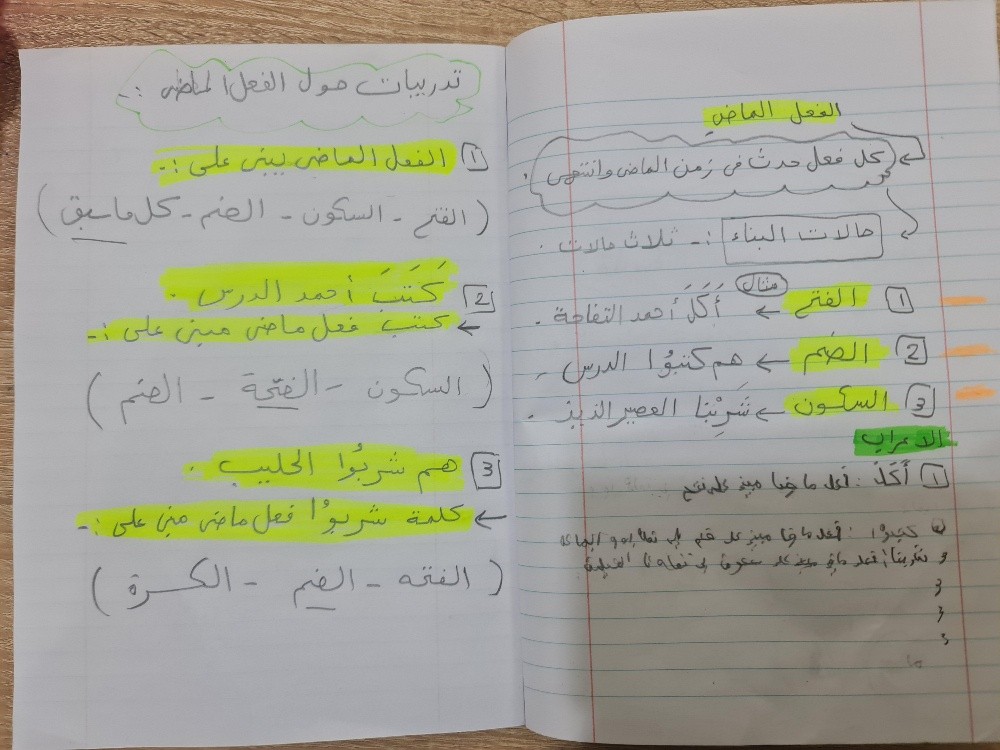 الفعل الماضي
كل فعل حدث في زمن الماضي وانتهى.
حالات البناء :- ثلاث حالات.
1 الفتح ← مثال أَكَلَ أحمد التفاحة.
2 الضم ← هم كتبُوا الدرس.
3 السكون ← شَرِبْنا العصير الذيذ.
الاعراب
1 أَكَلَ : فعل ماضي مبني على فتح
كتبوا : فعل ماضي مبني على ضم
شربنا : فعل ماضي مبني على سكون
تدريبات حول الفعل الماضي :-
1 الفعل الماضي يبنى على :-
(الفتح - السكون - الضم - كل ما سبق)
2 كَتَبَ أحمد الدرس.
← كتب فعل ماضي مبني على :-
(السكون - الفتحة - الضم)
3 هم شربُوا الحليب.
← كلمة شربوُا فعل ماضي مبني على :-
(الفتحه - الضم - الكسرة)